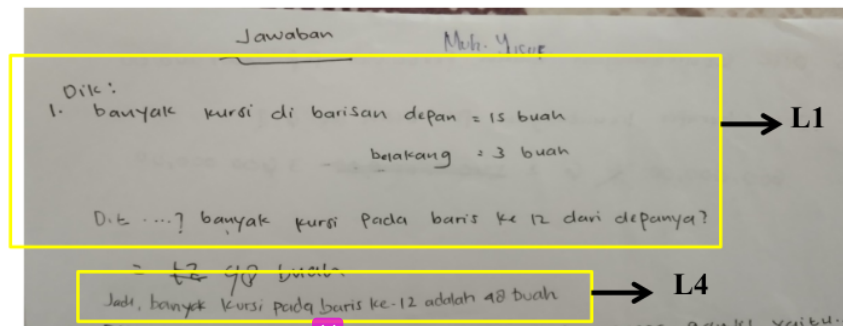 Jawaban Muh. Yusuf
Dik:
1. banyak kursi di barisan depan = 15 buah
belakang = 3 buah
L1
Dit ....? banyak kursi pada baris ke 12 dari depanya?
= 48 buah
Jadi, banyak kursi pada baris ke-12 adalah 48 buah
L4
yaitu